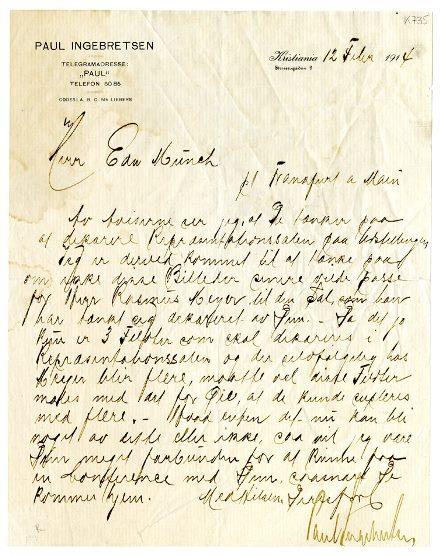 K735
PAUL INGEBRETSEN
TELEGRAMADRESSE:
"PAUL"
TELEFON 5085
CODES: A. B. C. 5th LIEBERS
Kristiania 12 Febr 1914
Herr Edv Münch
pt Frankfurt a Main
Av aviserne ser jeg, at De tænker paa
at dekorere Repræsentationssalen paa Udstillingen
jeg er derved kommet til at tænke paa
om ikke disse Billeder senere vilde passe
for Herr Rasmus Meyer til den Sal, som han
har tænkt sig dekoreret av Dem. - Da det jo
kun er 3 Felter som skal dekoreres i
Repræsentationssalen og der hos
Meyer blir flere, maatte vel disse Felter
males med det for Øie, at de kunde supleres
med flere. - Hvad enten det nu kan bli
noget av dette eller ikke, saa vil jeg være
Dem meget forbunden for at kunne faa
en Conference med Dem, saasnart De
kommer hjem.
Med Hilsen
Paul Ingebretsen